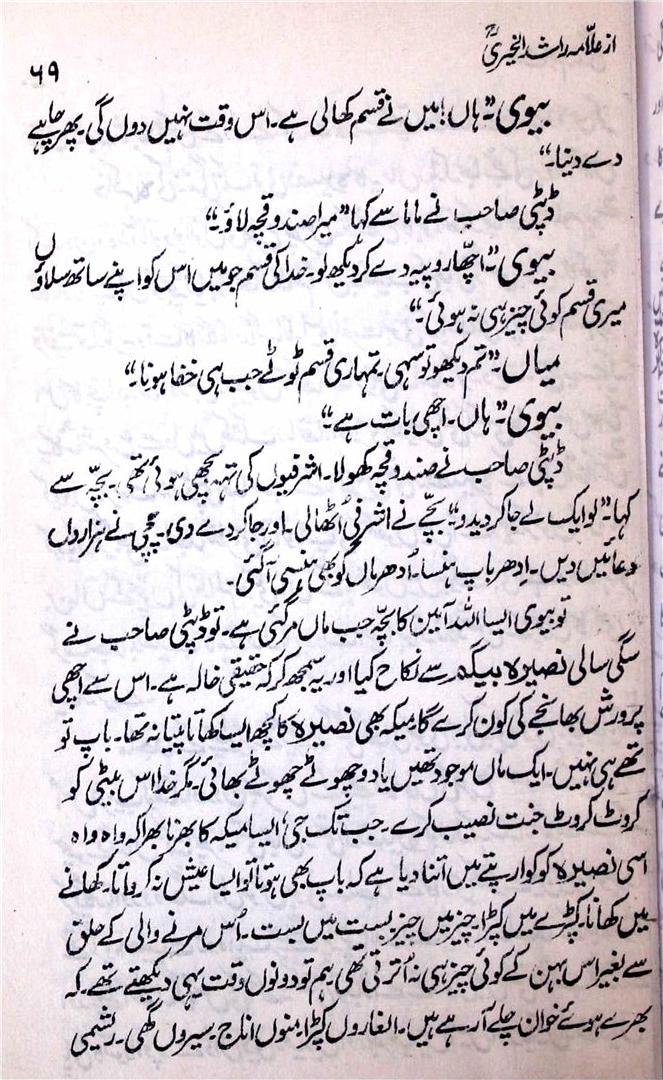 از علامہ راشد الخیریؒ
۶۹
بیوی "ہاں! میں نے قسم کھالی ہے۔ اس وقت نہیں دوں گی۔ پھر چاہے
دے دینا۔"
ڈپٹی صاحب نے ماما سے کہا "میرا صندوقچہ لاؤ۔"
بیوی "اچھا روپیہ دے کر دیکھ لو۔ خدا کی قسم جو میں اس کو اپنے ساتھ سلاؤں
میری قسم کوئی چیز ہی نہ ہوئی۔"
میاں۔ "تم دیکھو تو سہی۔ تمہاری قسم ٹوٹے جب ہی خفا ہونا۔"
بیوی "ہاں۔ اچھی بات ہے۔"
ڈپٹی صاحب نے صندوقچہ کھولا۔ اشرفیوں کی تہہ بچھی ہوئی تھی۔ بچّہ سے
کہا۔ "لو ایک لے جا کر دیدو" بچّے نے اشرفی اُٹھالی۔ اور جا کر دے دی۔ نے ہزارواں
دعائیں دیں۔ اِدھر باپ ہنسا۔ اُدھر ماں کو بھی ہنسی آگئی۔
تو بیوی ایسا اللہ آمین کا بچّہ جب ماں مر گئی ہے۔ تو ڈپٹی صاحب نے
سگی سالی نصیرہ بیگم سے نکاح کیا اور یہ سمجھ کر کہ حقیقی خالہ ہے۔ اس سے اچھی
پرورش بھانجے کی کون کرے گا۔ میکہ بھی نصیرہ کا کچھ ایسا کھاتا پیتا نہ تھا۔ باپ تو
تھے ہی نہیں۔ ایک ماں موجود تھیں یا دو چھوٹے چھوٹے بھائی۔ مگر خدا اس بیٹی کو
کروٹ کروٹ جنت نصیب کرے۔ جب تک جی ایسا میکہ کا بھرنا بھرا کہ واہ واہ
اسی نصیرہ کو کوارپتے میں اتنا دیا ہے کہ باپ بھی ہوتا تو ایسا عیش نہ کرواتا۔ کھانے
میں کھانا۔ کپڑے میں کپڑا۔ چیز میں چیز بست میں بست۔ اُس مرنے والی کے حلق
سے بغیر اس بہن کے کوئی چیز ہی نہ اُترتی تھی۔ ہم تو دونوں وقت یہی دیکھتے تھے۔ کہ
بھرے ہوئے خوان چلے آرہے ہیں۔ الغاروں کپڑا۔ منوں اناج۔ سیروں گھی۔ ریشمی